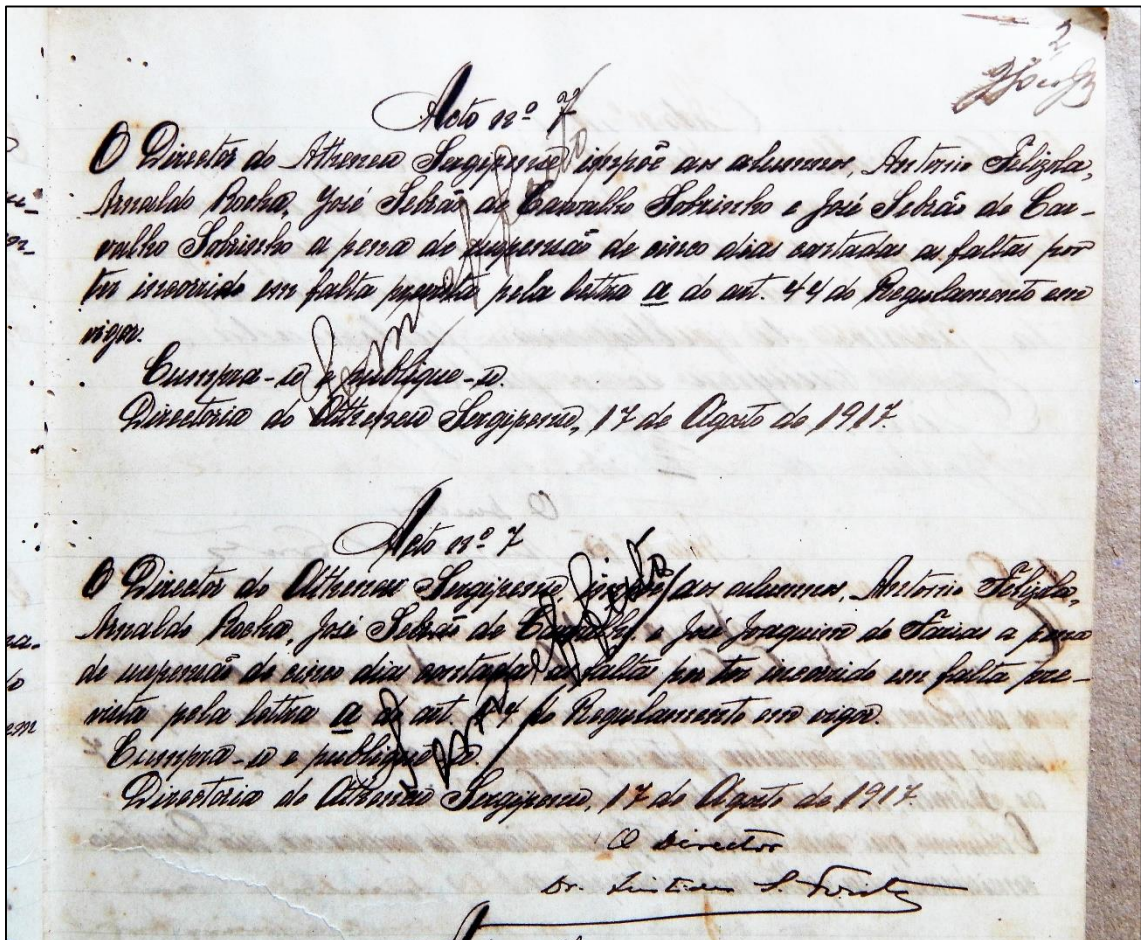 2
Acto nº 7
O Director do Atheneu Sergipense impõe aos alumnos, Antonio Felizola,
Arnaldo Rocha, José Sebrão de Carvalho Sobrinho e José Sebrão de Car-
valho Sobrinho a pena de suspensão de cinco dias contadas as faltas por
ter incorrido em falta prevista pela lettra a do art. 44 do Regulamento em
vigor.
Cumpra-se e publique-se.
Directoria do Atheneu Sergipense, 17 de Agosto de 1917.
Sem effeito
Acto nº 7
O Director do Atheneu Sergipense, impõe aos alumnos, Antonio Felizola,
Arnaldo Rocha, José Sebrão de Carvalho e José Joaquim de Farias a pena
de suspensão de cinco dias contadas as faltas por ter incorrido em falta pre-
vista pela lettra a do art. 44 do Regulamento em vigor.
Cumpra-se e publique-se.
Directoria do Atheneu Sergipense, 17 de Agosto de 1917.
Sem effeito
O Director
Dr.